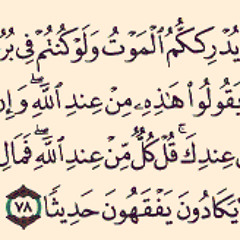 يُدْرِككُّمُ ٱلْمَوْتُ وَلَوْ كُنتُمْ فِى بُرُ
يَقُولُوا۟ هَـٰذِهِۦ مِنْ عِندِ ٱللَّهِ ۖ وَإِن
عِندِكَ ۚ قُلْ كُلٌّ مِّنْ عِندِ ٱللَّهِ ۖ فَمَالِ
يَكَادُونَ يَفْقَهُونَ حَدِيثًا ٧٨